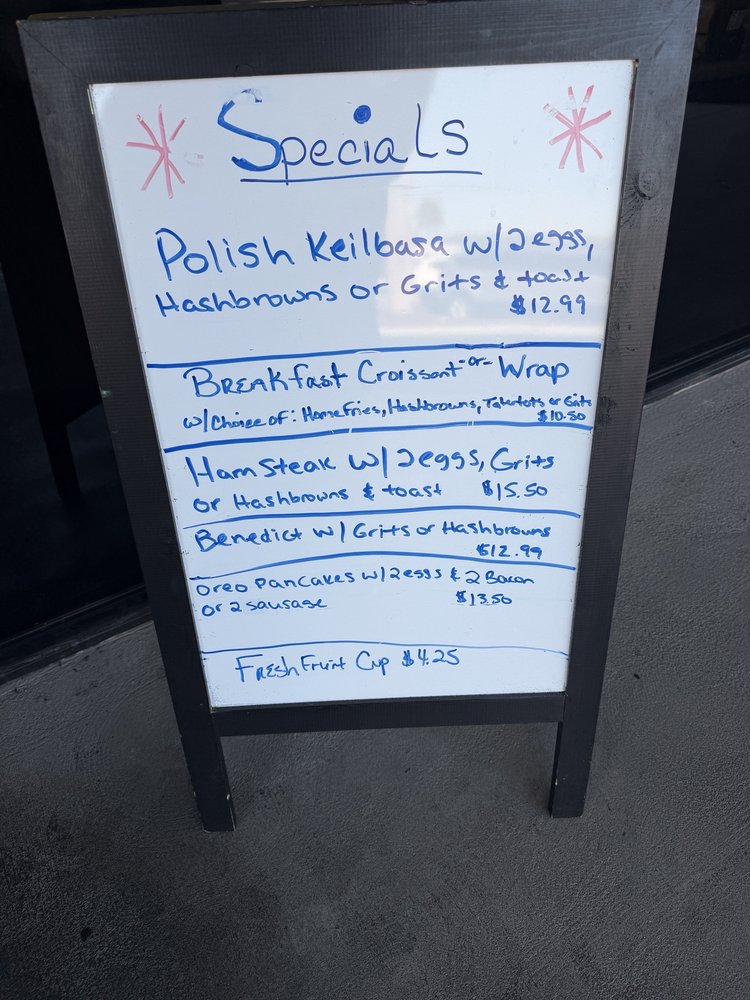 Specials
Polish Keilbasa w/2eggs,
Hashbrowns or Grits & toast
$12.99
Breakfast Croissant -or- Wrap
w/Choice of: Homefries, Hashbrowns, Tatertots or Grits
$10.50
Ham Steak w/2eggs, Grits
or Hashbrowns & toast $15.50
Benedict w/Grits or Hashbrowns
$12.99
Oreo Pancakes w/2eggs & 2 Bacon
or 2 sausage $13.50
Fresh Fruit Cup $4.25